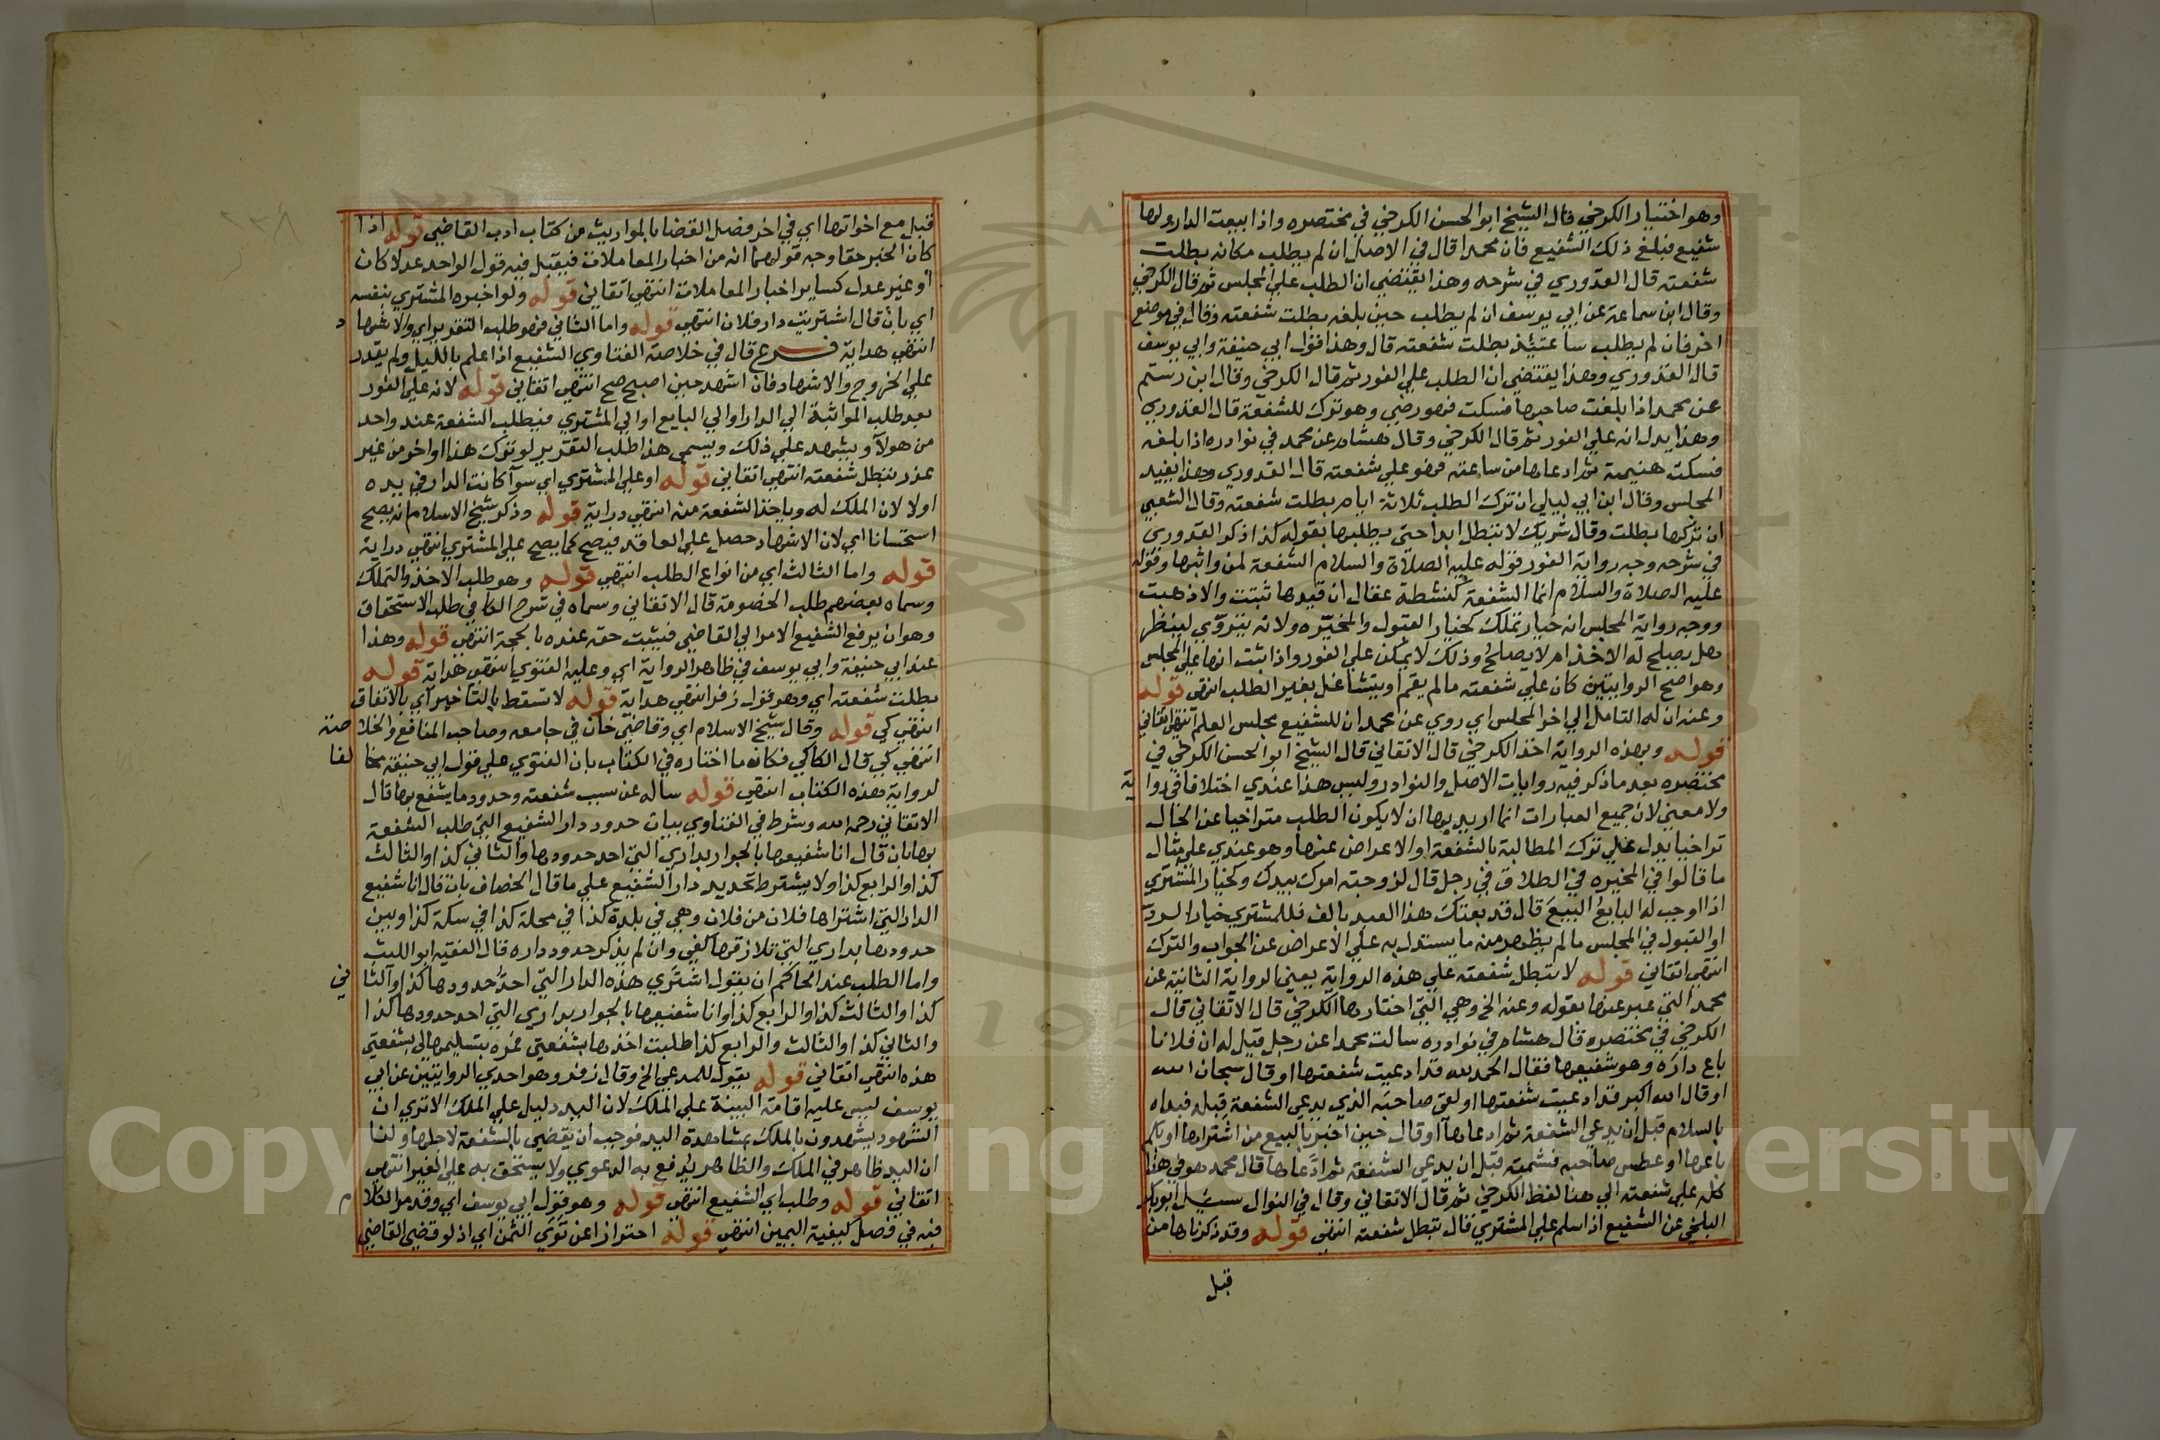 وهو اختيار الكرخي قال الشيخ ابو الحسن الكرخي في مختصره واذا بيعت الدار ولها
شفيع فبلغ ذلك الشفيع فان محمدا قال في الاصل ان لم يطلب مكانه بطلت
شفعته قال القدوري في شرحه وهذا يقتضي ان الطلب علي المجلس ثم قال الكرخي
وقال ابن سماعة عن ابي يوسف ان لم يطلب حين بلغه بطلت شفعته وقال في موضع
اخر فان لم يطلب ساعتئذ بطلت شفعته قال وهذا قول ابي حنيفة وابي يوسف
قال القدوري وهذا يقتضي ان الطلب علي الفور ثم قال الكرخي وقال ابن رستم
عن محمد اذا بلغت صاحبها فسكت فهو رضي وهو ترك للشفعة قال القدوري
وهذا يدل انه علي الفور ثم قال الكرخي وقال هشام عن محمد في نوادره اذا بلغه
فسكت هنيهة ثم ادعاها من ساعته فهو علي شفعته قال القدوري وهذا يفيد
المجلس وقال ابن ابي ليلي ان ترك الطلب ثلاثة ايام بطلت شفعته وقال الشعبي
ان تركها بطلت وقال شريك لا تبطل ابدا حتي يطلبها بقوله كذا ذكر القدوري
في شرحه وجه رواية الفور قوله عليه الصلاة والسلام الشفعة لمن واثبها وقوله
عليه الصلاة والسلام انما الشفعة كنشطة عقال ان قيدها ثبتت والا ذهبت
ووجه رواية المجلس انه خيار تملك كخيار القبول والمخيره ولانه يتروي لينظر
هل يصلح له الاخذ ام لا يصلح وذلك لا يمكن علي الفور واذا ثبت انها علي المجلس
وهو اصح الروايتين كان علي شفعته ما لم يقم او يتشاغل بغير الطلب انتهي قوله
وعنه ان له التامل الي اخر المجلس اي روي عن محمد ان للشفيع مجلس العلم انتهي اتقاني
قوله وبهذه الرواية اخذ الكرخي قال الاتقاني قال الشيخ ابو الحسن الكرخي في
مختصره بعد ما ذكر فيه روايات الاصل والنوادر وليس هذا عندي اختلافا في روا ية
ولا معني لان جميع العبارات انما اريد بها ان لا يكون الطلب متراخيا عن الحال
تراخيا يدل علي ترك المطالبة بالشفعة او الاعراض عنها وهو عندي علي مثال
ما قالوا في المخيره في الطلاق في رجل قال لزوجته امرك بيدك وكخيار المشتري
اذا اوجب له البايع البيع قال قد بعتك هذا العبد بالف فللمشتري خيار الرد
او القبول في المجلس ما لم يظهر منه ما يستدل به علي الاعراض عن الجواب والترك
انتهي اتقاني قوله لا تبطل شفعته علي هذه الرواية يعني الرواية الثانية عن
محمد التي عبر عنها بقوله وعنه الخ وهي التي اختارها الكرخي قال الاتقاني قال
الكرخي في مختصره قال هشام في نوادره سالت محمدا عن رجل قيل له ان فلانا
باع داره وهو شفيعها فقال الحمد لله قد ادعيت شفعتها او قال سبحان الله
او قال الله اكبر قد ادعيت شفعتها او لقي صاحبه الذي يدعي الشفعة قبله فبداه
بالسلام قبل ان يدعي الشفعة ثم ادعاها او قال حين اخبر بالبيع من اشتراها او بكم
باعها او عطس صاحبه فشمته قبل ان يدعي الشفعة ثم ادعاها قال محمد هو في هذا
كله علي شفعته الي هنا لفظ الكرخي ثم قال الاتقاني وقال في النوال سئل ابو بكر
البلخي عن الشفيع اذا سلم علي المشتري قال تبطل شفعته انتهي قوله وقد ذكرناها من
قبل
قبل مع اخواتها اي في اخر فصل القضا بالمواريث من كتاب ادب القاضي قوله اذا
كان الخبر حقا وجه قولهما انه من اخبار المعاملات فيقبل فيه قول الواحد عدلا كان
او غير عدل كساير اخبار المعاملات انتهي اتقاني قوله ولو اخبره المشتري بنفسه
اي بان قال اشتريت دار فلان انتهي قوله واما الثاني فهو طلب التقرير اي والاشها د
انتهي هداية فرع قال في خلاصة الفتاوي الشفيع اذا علم بالليل ولم يقدر
علي الخروج والاشهاد فان اشهد حين اصبح صح انتهي اتقاني قوله لانه علي الفور
بعد طلب المواثبة الي الدار او الي البايع او الي المشتري فيطلب الشفعة عند واحد
من هولآ ويشهد علي ذلك ويسمي هذا طلب التقرير لو ترك هذا او اخر من غير
عذر تبطل شفعته انتهي اتقاني قوله او علي المشتري اي سوآ كانت الدار في يده
اولا لان الملك له وياخذ الشفعة منه انتهي دراية قوله وذكر شيخ الاسلام انه يصح
استحسانا اي لان الاشهاد حصل علي العاقد فيصح كما يصح علي المشتري انتهي دراية
قوله واما الثالث اي من انواع الطلب انتهي قوله وهو طلب الاخذ والتملك
وسماه بعضهم طلب الخصومة قال الاتقاني وسماه في شرح الكافي طلب الاستحقاق
وهو ان يرفع الشفيع الامر الي القاضي فيثبت حقه عنده بالحجة انتهي قوله وهذا
عند ابي حنيفة وابي يوسف في ظاهر الرواية اي وعليه الفتوي انتهي هداية قوله
بطلت شفعته اي وهو قول زفر انتهي هداية قوله لا تسقط بالتاخير اي بالاتفاق
انتهي كي قوله وقال شيخ الاسلام اي وقاضي خان في جامعه وصاحب المنافع والخلا صة
انتهي كي قال الكاكي فكانه ما اختاره في الكتاب بان الفتوي علي قول ابي حنيفة مخا لفا
لرواية هذه الكتاب انتهي قوله ساله عن سبب شفعته وحدود ما يشفع بها قال
الاتقاني رحمه الله وشرط في الفتاوي بيان حدود دار الشفيع التي طلب الشفعة
بها بان قال انا شفيعها بالجوار بداري التي احد حدودها والثاني كذا والثالث
كذا والرابع كذا ولا يشترط تحديد دار الشفيع علي ما قال الخصاف بان قال انا شفيع
الدار التي اشتراها فلان من فلان وهي في بلدة كذا في محلة كذا في سكة كذا وبين
حدودها بداري التي تلازقها كفي وان لم يذكر حدود داره قال الفقيه ابو الليث
واما الطلب عند الحاكم ان يقول اشتري هذه الدار التي احد حدودها كذا والثا ني
كذا والثالث كذا والرابع كذا وانا شفيعها بالجوار بداري التي احد حدودها كذا
والثاني كذا والثالث والرابع كذا طلبت اخذها بشفعتي فمره بتسليمها الي بشفعتي
هذه انتهي اتقاني قوله يقول للمدعي الخ وقال زفر وهو احدي الروايتين عن ابي
يوسف ليس عليه اقامة البينة علي الملك لان اليد دليل علي الملك الا تري ان
الشهود يشهدون بالملك بمشاهدة اليد فوجب ان يقضي بالشفعة لاجلها ولنا
ان اليد ظاهر في الملك والظاهر يدفع به الدعوي ولا يستحق به علي الغير انتهي
اتقاني قوله وطلب اي الشفيع انتهي قوله وهو قول ابي يوسف اي وقد مر الكلا م
فيه في فصل كيفية اليمين انتهي قوله احترازا عن توي الثمن اي اذ لو قضي القاضي